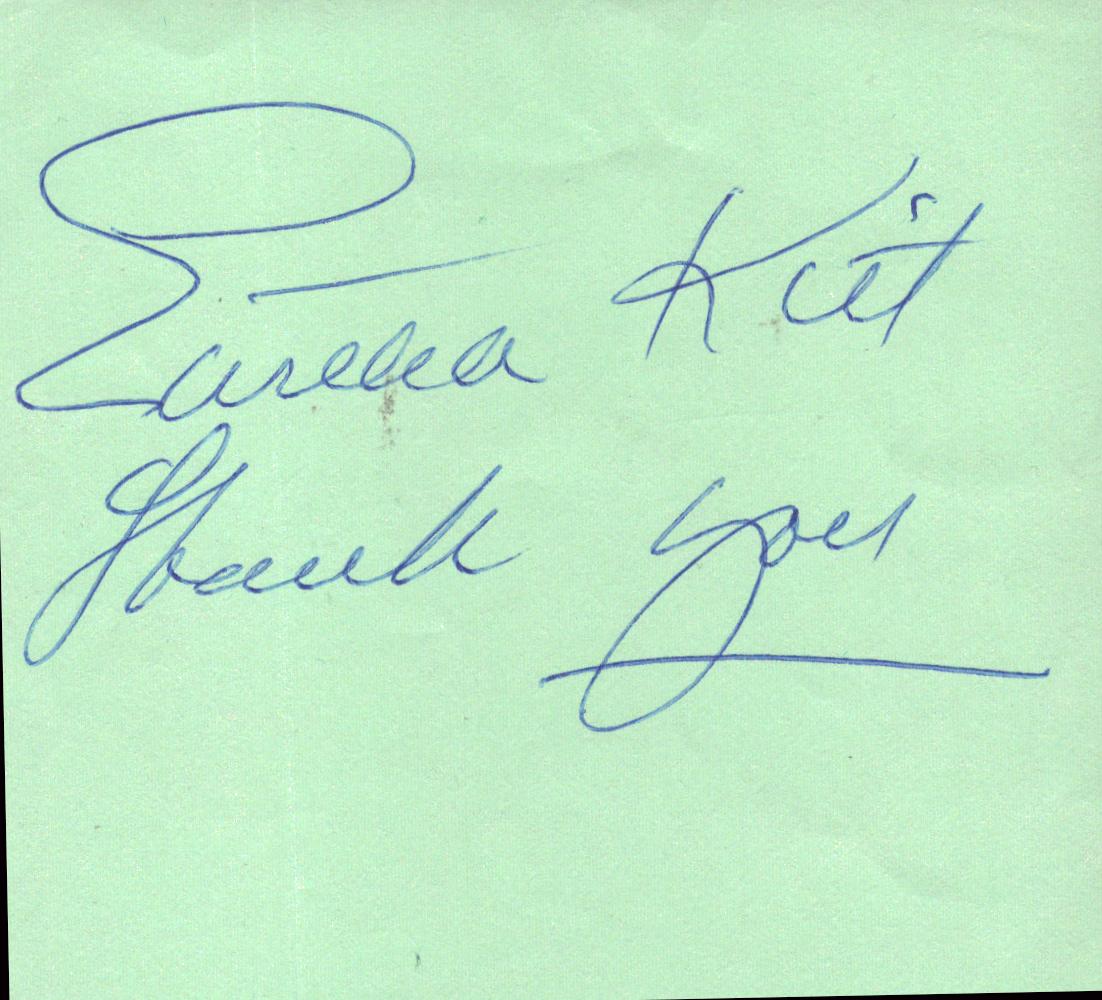 Eartha Kitt
Thank you